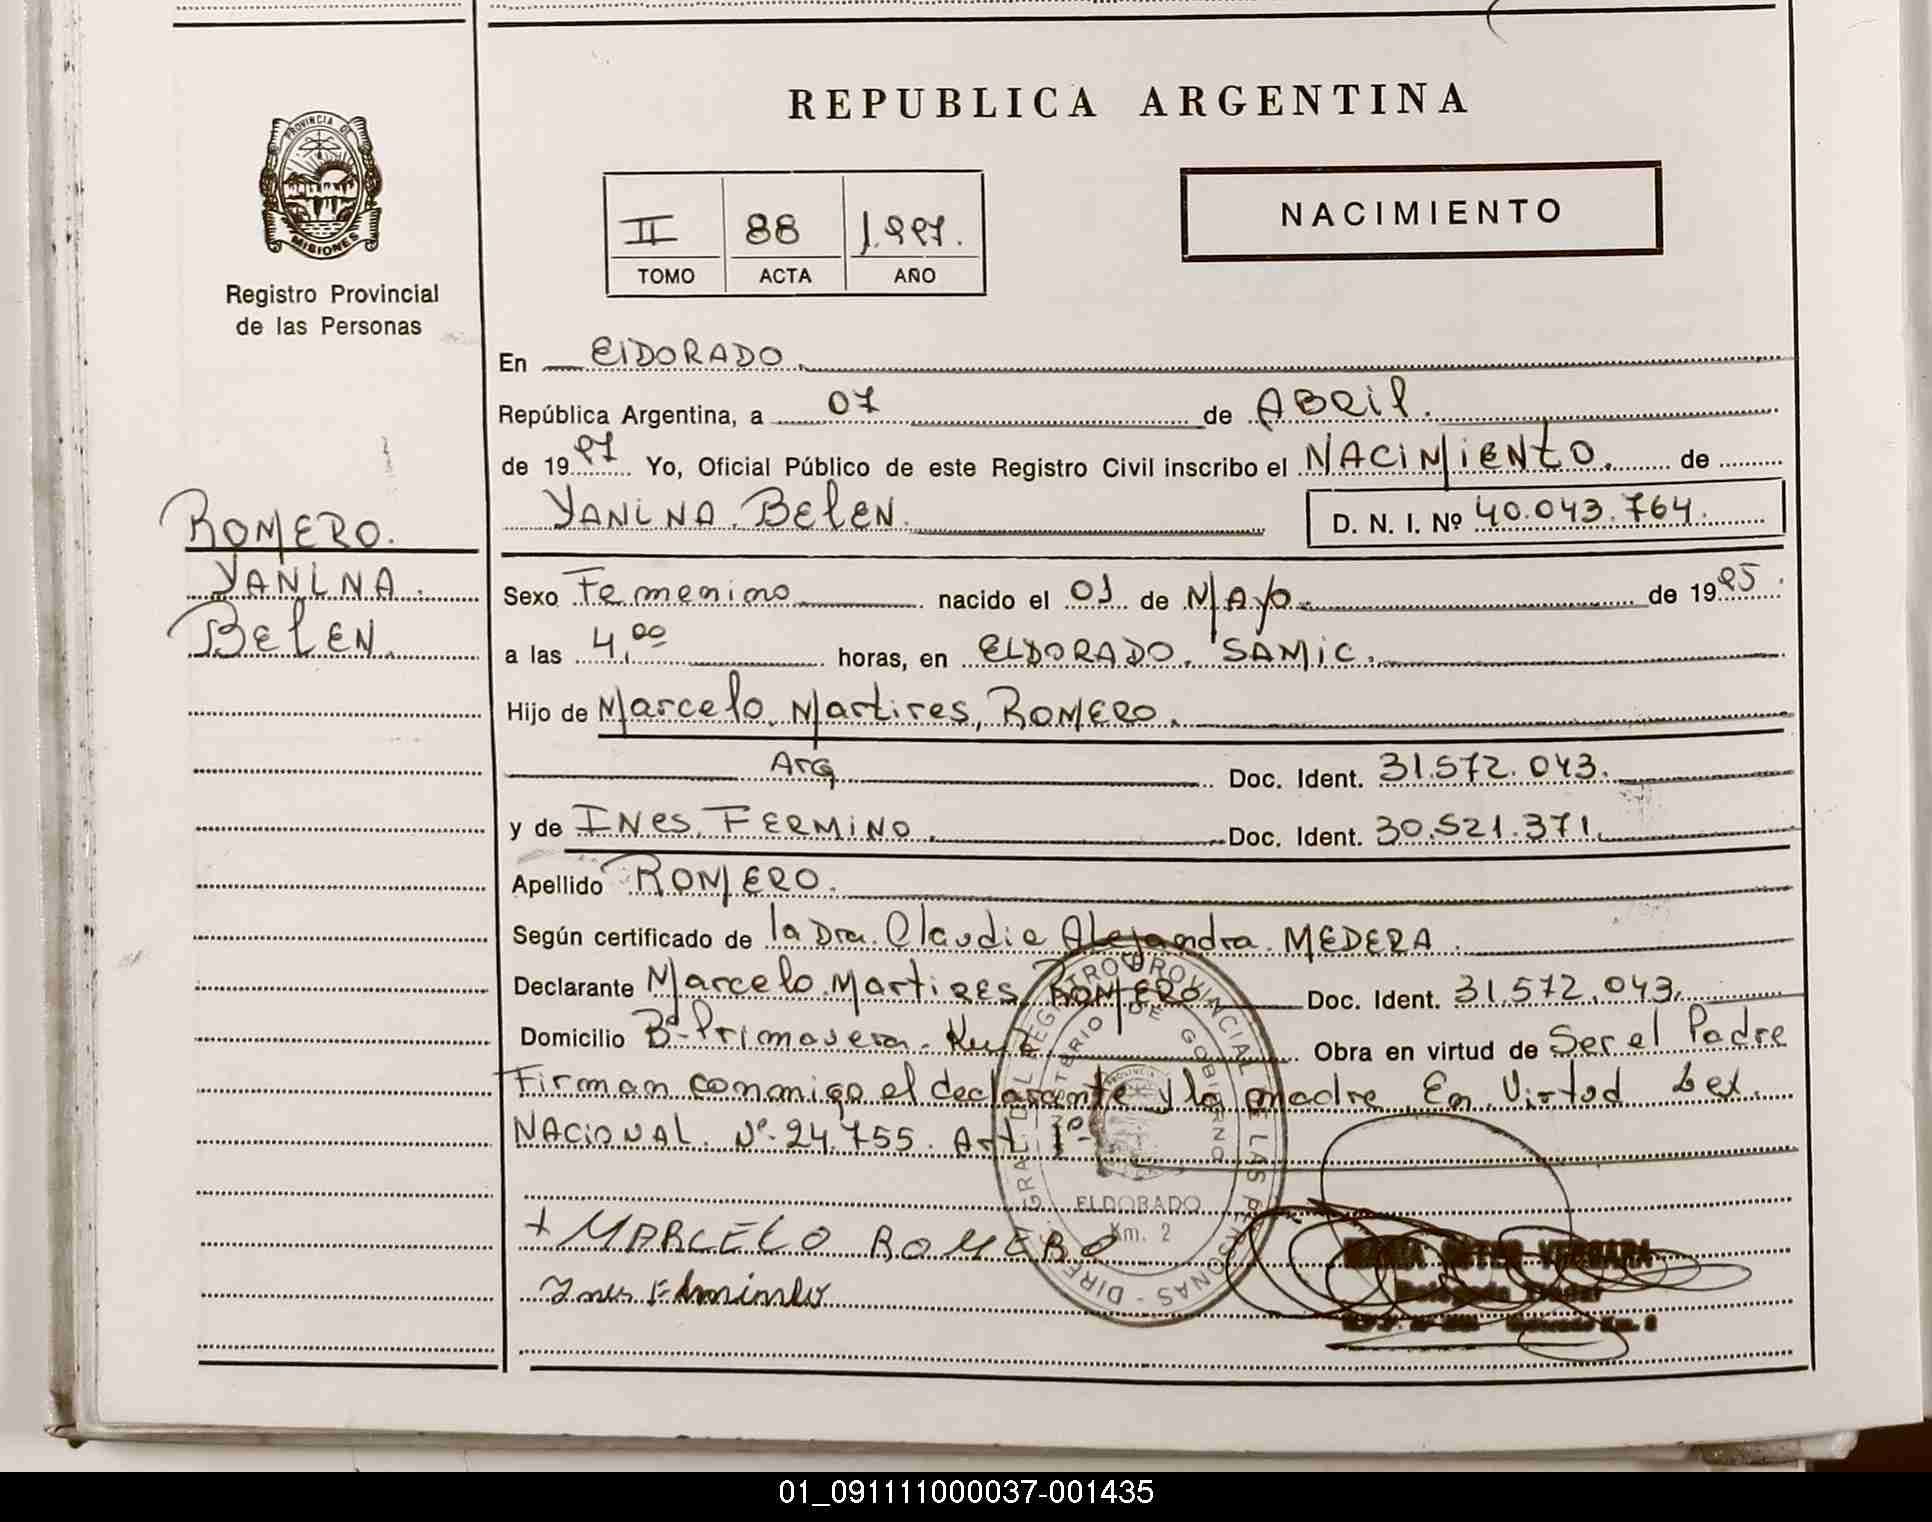 REPUBLICA ARGENTINA
PROVINCIA DE
MISIONES
Registro Provincial
de las Personas
II 88 1.997.
TOMO ACTA AÑO
NACIMIENTO
En ElDORADO.
República Argentina, a 07 de ABRil.
de 1997 Yo, Oficial Público de este Registro Civil inscribo el NACIMIENTO. de
YANINA BELEN. D. N. I. Nº 40.043.764.
ROMERO.
YANINA.
BELEN.
Sexo Femenino nacido el 01 de MAyo. de 1995.
a las 4,00 horas, en ELDORADO. SAMIC.
Hijo de Marcelo Martires, ROMERO.
Arg Doc. Ident. 31.572.043.
y de INes, FERMINO. Doc. Ident. 30.521.371.
Apellido ROMERO.
Según certificado de la Dra. Claudia Alejandra MEDERA.
Declarante Marcelo Martires ROMERO Doc. Ident. 31.572.043.
Domicilio Bº Primavera. Km 2 Obra en virtud de Ser el Padre
Firman conmigo el declarante y la madre En Virtud Ley.
NACIONAL Nº 24.755. Art. 1º
+ MARCELO ROMERO
Ines
DIRE. GRAL. DEL REGISTRO PROVINCIAL DE LAS PERSONAS -
MINISTERIO DE GOBIERNO
ELDORADO
Km. 2
01_091111000037-001435